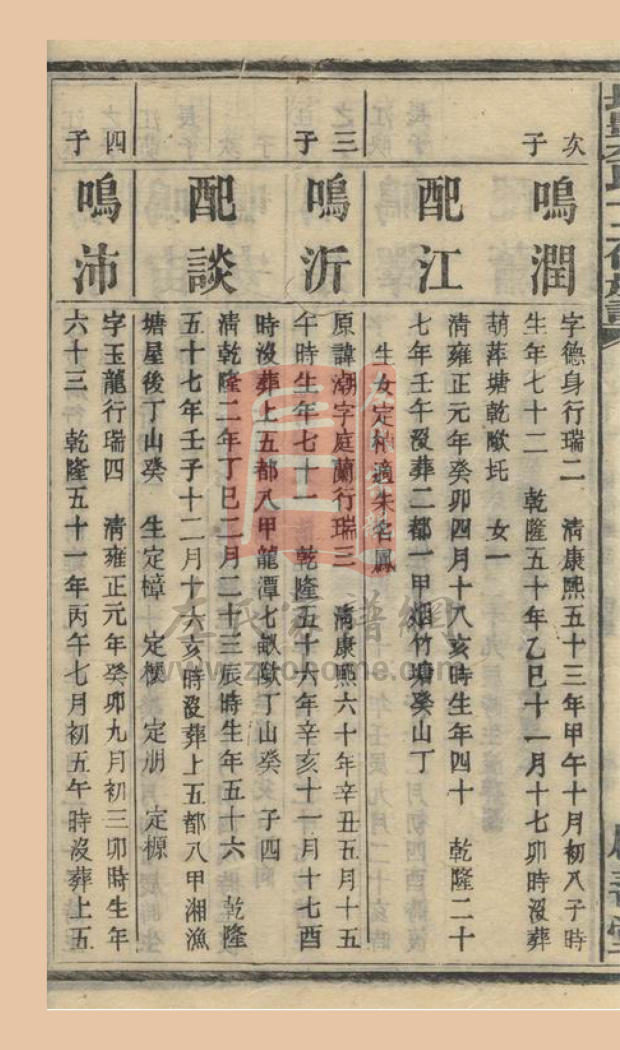 次
子
鳴潤
字德身行瑞二　清康熙五十三年甲午十月初八子時
生年七十二　乾隆五十年乙巳十一月十七卯時沒葬
胡萍塘乾𡼏圫　女一
配江
清雍正元年癸卯四月十八亥時生年四十　乾隆二十
七年壬午沒葬二都一甲烟竹塘癸山丁
生女定　適朱名鳳
三
子
鳴沂
原諱潮字庭蘭行瑞三　清康熙六十年辛丑五月十五
午時生年七十一　乾隆五十六年辛亥十一月十七酉
時沒葬上五都八甲龍潭七畝　丁山癸　子四
配談
清乾隆二年丁巳二月二十三辰時生年五十六　乾隆
五十七年壬子十二月十六亥時沒葬上五都八甲湘漁
塘屋後丁山癸　生定樟　定　　定朋　定榞
四
子
鳴沛
字玉龍行瑞四　清雍正元年癸卯九月初三卯時生年
六十三　乾隆五十一年丙午七月初五午時沒葬上五
左氏家譜網